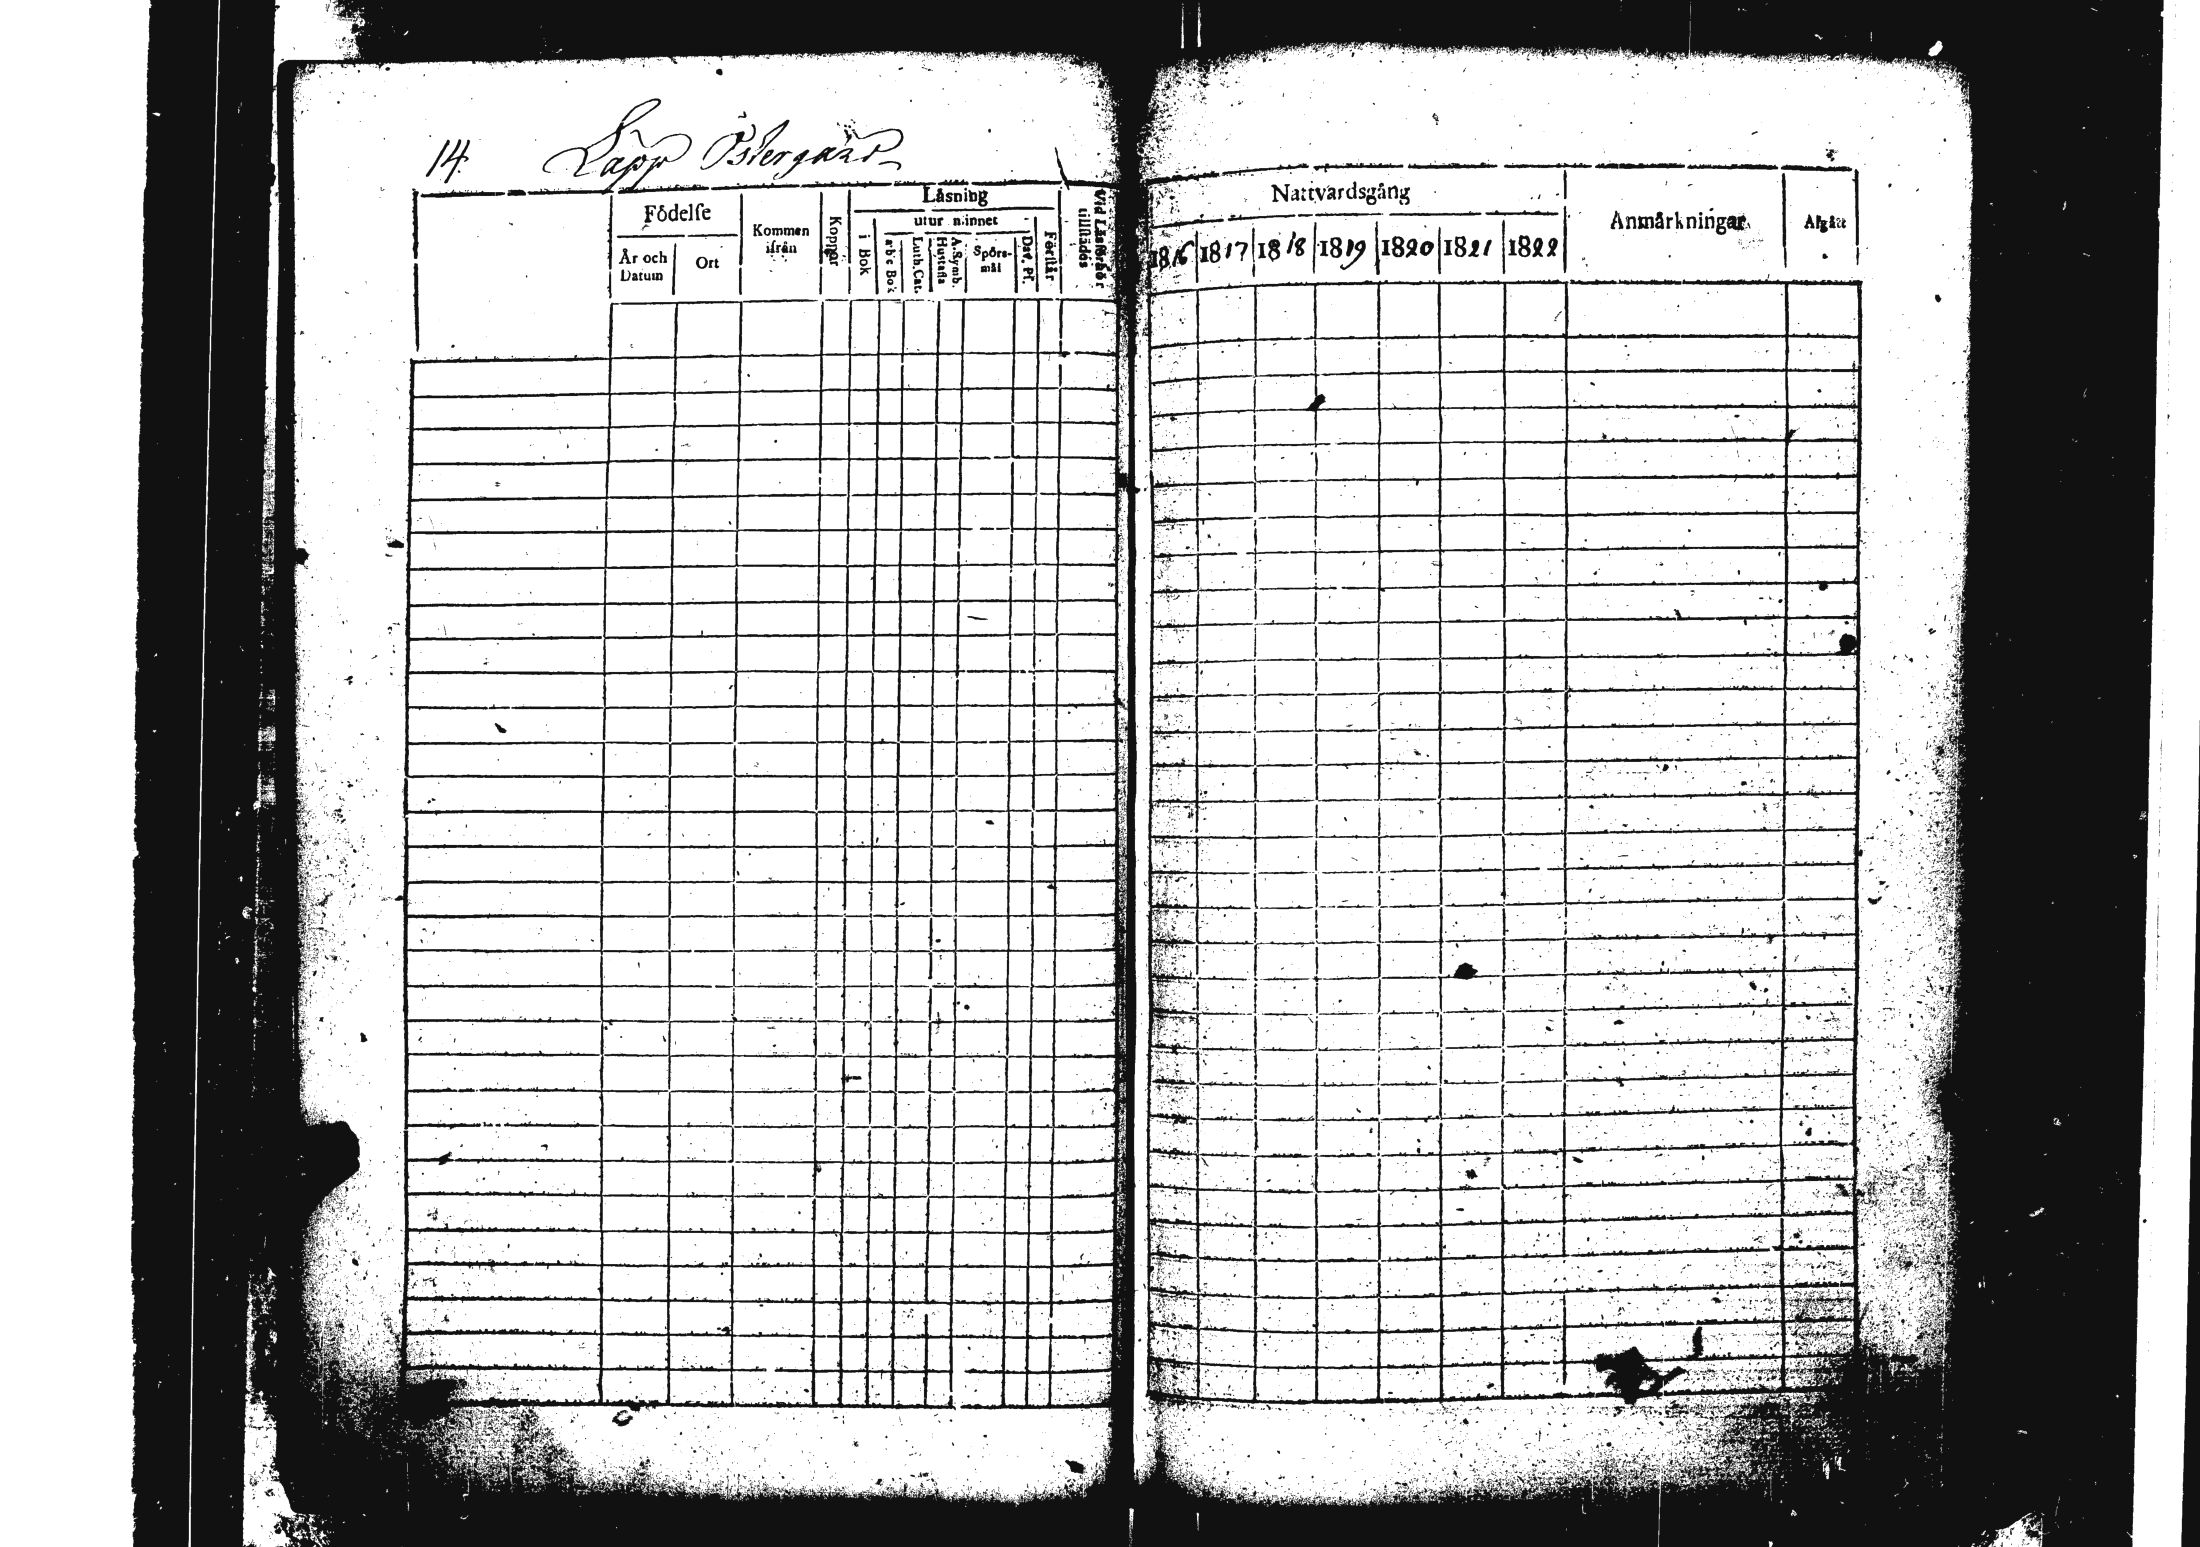 14. Lapp Östergård
Födelſe
År och Datum
Ort
Kommen ifrån
Koppor
Läsning
i Bok
utur minnet
abc Bok
Luth. Cat.
A. Symb. Hustafla
Spörs-mål
Dav. Ps.
Förſtår
Vid Läsförhör tillſtädes
Nattvardsgång
1816 1817 1818 1819 1820 1821 1822
Anmärkningar
Afgått